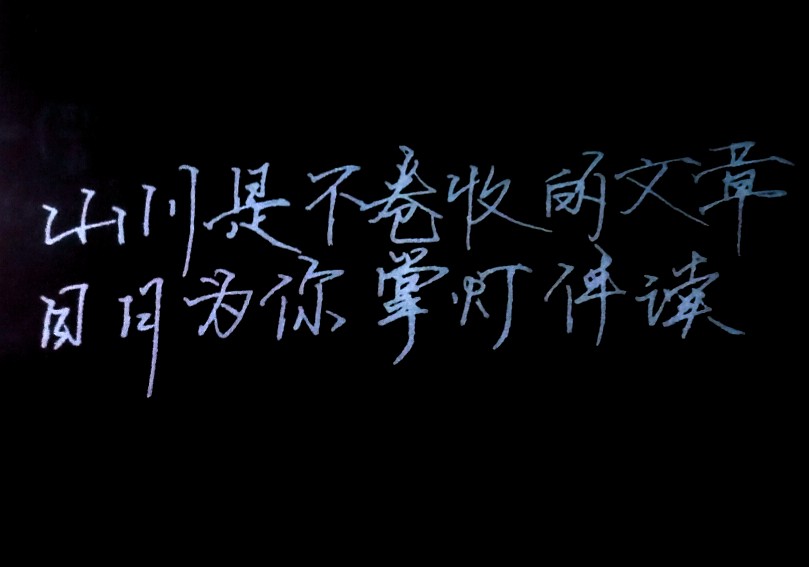 山川是不卷收的文章
日月为你掌灯伴读